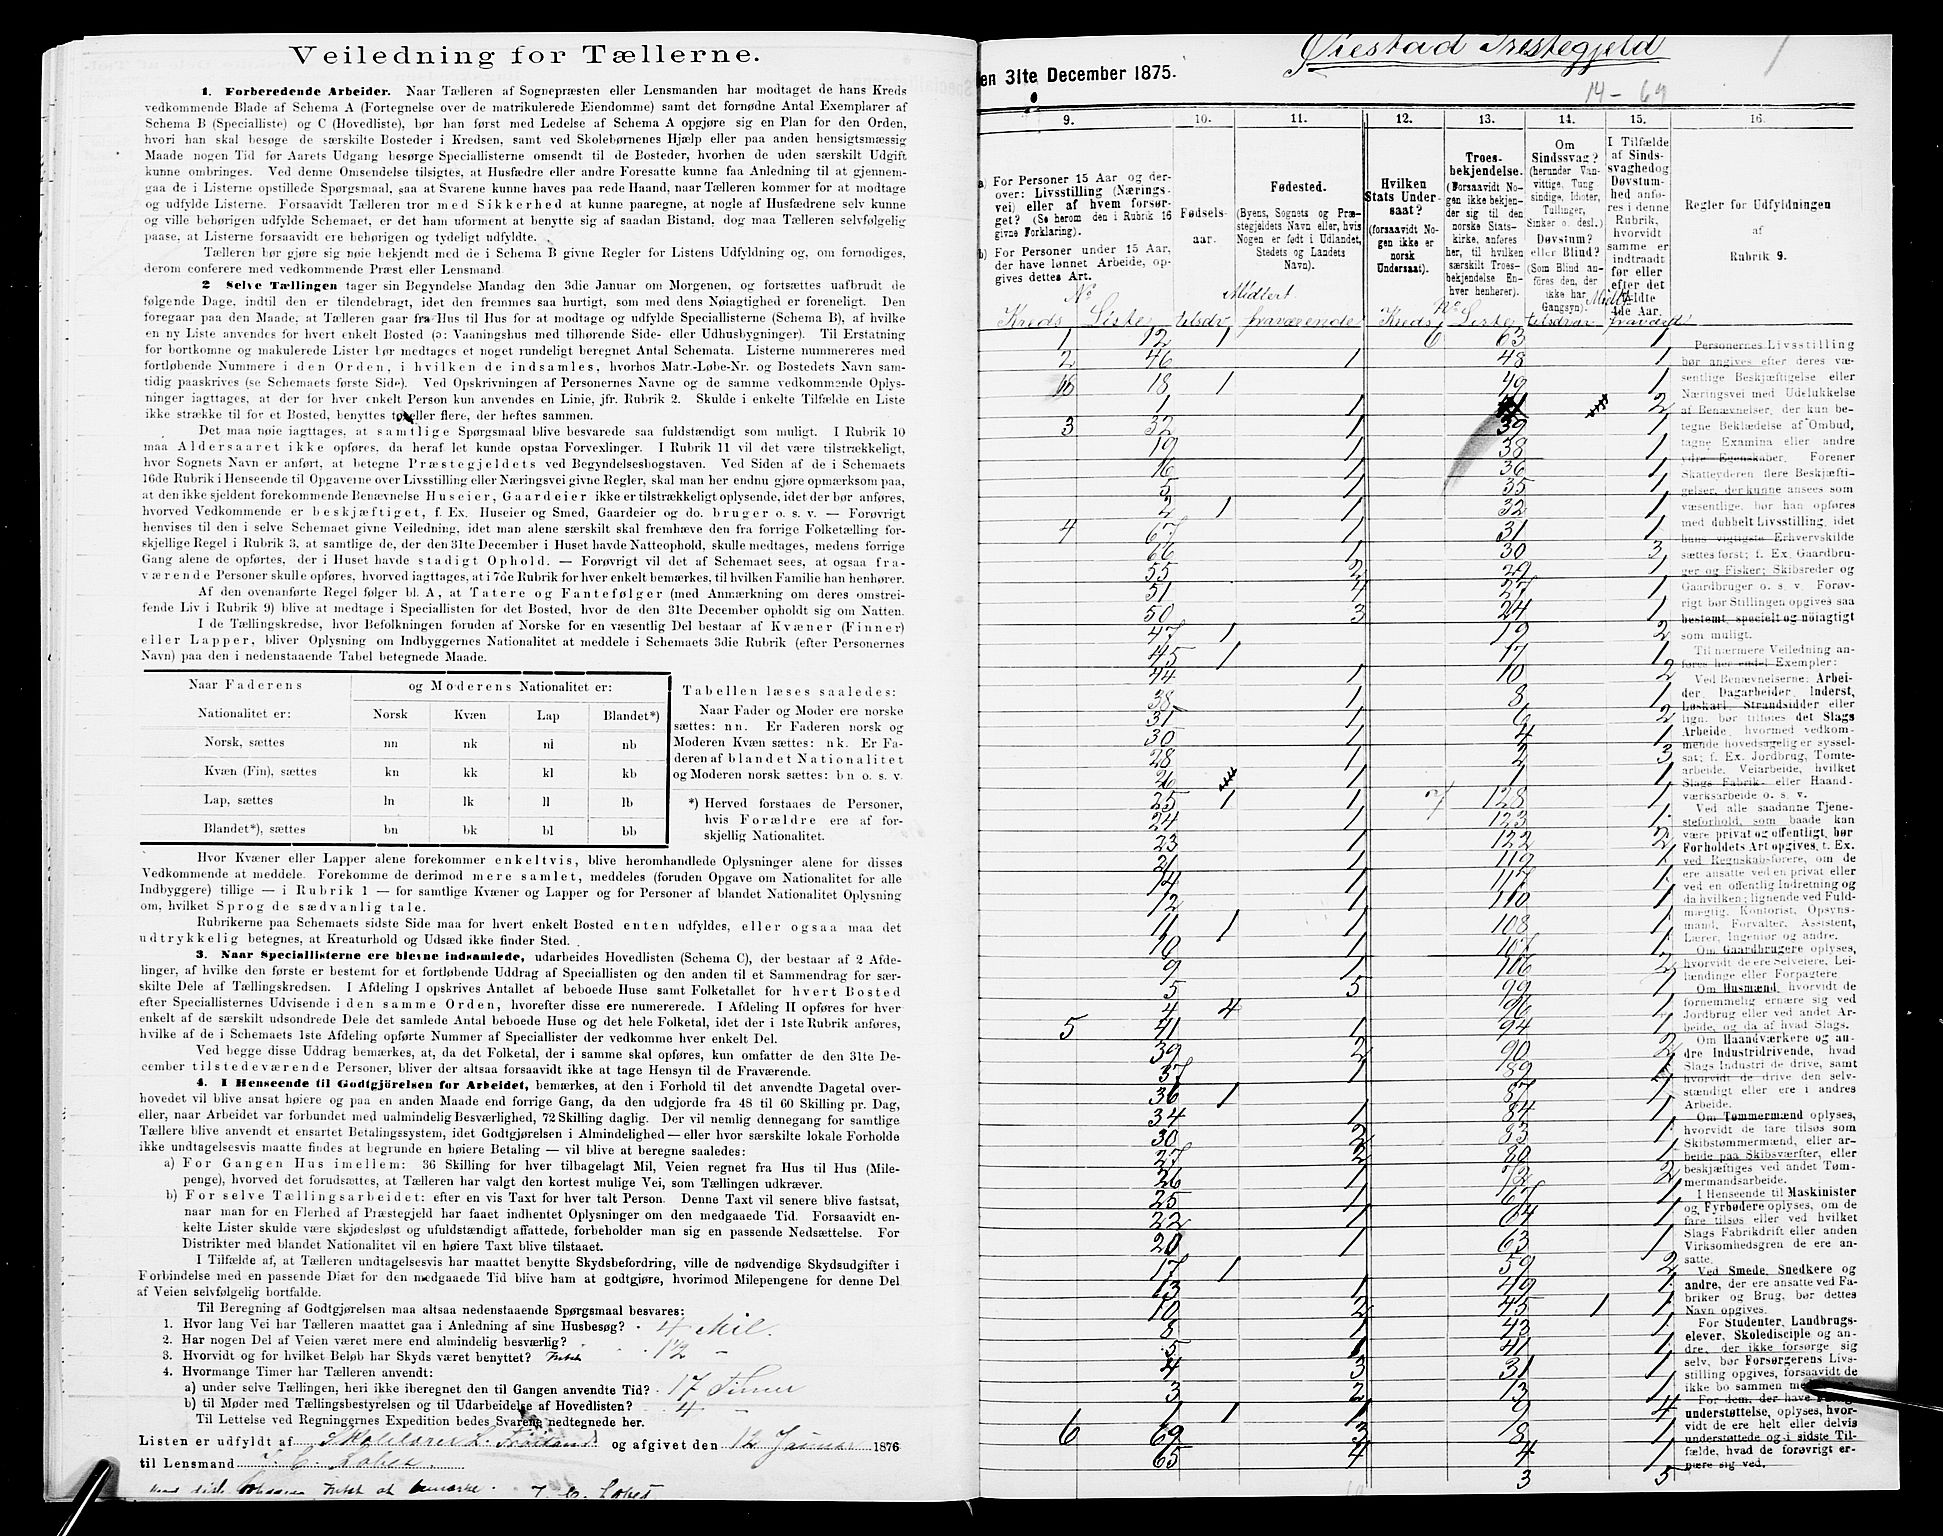 Veiledning for Tællerne.
1. Forberedende Arbeider. Naar Tælleren af Sognepræsten eller Lensmanden har modtaget de hans Kreds
vedkommende Blade af Schema A (Fortegnelse over de matrikulerede Eiendomme) samt det fornødne Antal Exemplarer af
Schema B (Specialliste) og C (Hovedliste), bør han først med Ledelse af Schema A opgjøre sig en Plan for den Orden,
hvori han skal besøge de særskilte Bosteder i Kredsen, samt ved Skolebørnenes Hjælp eller paa anden hensigtsmæssig
Maade nogen Tid før Aarets Udgang besørge Speciallisterne omsendt til de Bosteder, hvorhen de uden særskilt Udgift
kunne ombringes. Ved denne Omsendelse tilsigtes, at Husfædre eller andre Foresatte kunne faa Anledning til at gjennem-
gaa de i Listerne opstillede Spørgsmaal, saa at Svarene kunne haves paa rede Haand, naar Tælleren kommer for at modtage
og udfylde Listerne. Forsaavidt Tælleren tror med Sikkerhed at kunne paaregne, at nogle af Husfædrene selv kunne
og ville behørigen udfylde Schemaet, er det ham uforment at benytte sig af saadan Bistand, dog maa Tælleren selvfølgelig
paase, at Listerne forsaavidt ere behørigen og tydeligt udfyldte.
Tælleren bør gjøre sig nøie bekjendt med de i Schema B givne Regler for Listens Udfyldning og, om fornødiges,
derom conferere med vedkommende Præst eller Lensmand.
2 Selve Tællingen tager sin Begyndelse Mandag den 3die Januar om Morgenen, og fortsættes uafbrudt de
følgende Dage, indtil den er tilendebragt, idet den fremmes saa hurtigt, som med dens Nøiagtighed er foreneligt. Den
foregaar paa den Maade, at Tælleren gaar fra Hus til Hus for at modtage og udfylde Speciallisterne (Schema B), af hvilke
en ny Liste anvendes for hvert enkelt Bosted (ɔ: Vaaningshus med tilhørende Side- eller Udhusbygninger). Til Erstatning
for bortkomne og makulerede Lister bør medtages et noget rundeligt beregnet Antal Schemata. Listerne nummereres med
fortløbende Nummere i den Orden, i hvilken de indsamles, hvorhos Matr.-Løbe-Nr. og Bostedets Navn sam-
tidig paaskrives (se Schemaets første Side). Ved Opskrivningen af Personernes Navne og de samme vedkommende Oplys-
ninger iagttages, at der for hver enkelt Person kun anvendes en Linie, jfr. Rubrik 2. Skulde i enkelte Tilfælde en Liste
ikke strække til for et Bosted, benyttes to eller flere, der heftes sammen.
Det maa nøie iagttages, at samtlige Spørgsmaal blive besvarede saa fuldstændigt som muligt. I Rubrik 10
maa Aldersaaret ikke opføres, da heraf let kunde opstaa Forvexlinger. I Rubrik 11 vil det være tilstrækkeligt,
hvor Sognets Navn er anført, at betegne Præstegjeldets ved Begyndelsesbogstaven. Ved Siden af de i Schemaets
16de Rubrik i Henseende til Opgaverne over Livsstilling eller Næringsvei givne Regler, skal man her endnu gjøre opmærksom paa,
at den ikke sjeldent forekommende Benævnelse Huseier, Gaardeier ikke er tilstrækkeligt oplysende, idet der bør anføres,
hvorved Vedkommende er beskjæftiget, f. Ex. Huseier og Smed, Gaardeier og do. bruger o. s. v. — Forøvrigt
henvises til den i selve Schemaet givne Veiledning, idet man alene særskilt skal fremhæve den fra forrige Folketælling for-
skjellige Regel i Rubrik 3, at samtlige de, der den 31te December i Huset havde Natteophold, skulle medtages, medens forrige
Gang alene de opførtes, der i Huset havde stadigt Ophold. — Forøvrigt vil det af Schemaet sees, at ogsaa fra-
værende Personer skulle opføres, hvorved iagttages, at i 7de Rubrik for hver enkelt bemærkes, til hvilken Familie han henhører.
Af den ovenanførte Regel følger bl. A, at Tatere og Fantefølger (med Anmærkning om deres omstrei-
fende Liv i Rubrik 9) blive at medtage i Speciallisten for det Bosted, hvor de den 31te December opholdt sig om Natten.
I de Tællingskredse, hvor Befolkningen foruden af Norske for en væsentlig Del bestaar af Kvæner (Finner)
eller Lapper, bliver Oplysning om Indbyggernes Nationalitet at meddele i Schemaets 3die Rubrik (efter Personernes
Navn) paa den i nedenstaaende Tabel betegnede Maade.
Naar Faderens og Moderens Nationalitet er:
Nationalitet er: Norsk Kvæn Lap Blandet*)
Norsk, sættes nn nk nl nb
Kvæn (Fin), sættes kn kk kl kb
Lap, sættes ln lk ll lb
Blandet*), sættes bn bk bl bb
Tabellen læses saaledes:
Naar Fader og Moder ere norske
sættes: nn. Er Faderen norsk og
Moderen Kvæn sættes: nk. Er Fa-
deren af blandet Nationalitet
og Moderen norsk sættes: bn o. s. v.
*) Herved forstaaes de Personer,
hvis Forældre ere af for-
skjellig Nationalitet.
Hvor Kvæner eller Lapper alene forekommer enkeltvis, blive heromhandlede Oplysninger alene for disses
Vedkommende at meddele. Forekomme de derimod mere samlet, meddeles (foruden Opgave om Nationalitet for alle
Indbyggere) tillige — i Rubrik 1 — for samtlige Kvæner og Lapper og for Personer af blandet Nationalitet Oplysning
om, hvilket Sprog de sædvanlig tale.
Rubrikerne paa Schemaets sidste Side maa for hvert enkelt Bosted enten udfyldes, eller ogsaa maa det
udtrykkelig betegnes, at Kreaturhold og Udsæd ikke finder Sted.
3. Naar Speciallisterne ere blevne indsamlede, udarbeides Hovedlisten (Schema C), der bestaar af 2 Afde-
linger, af hvilke den første er bestemt for et fortløbende Uddrag af Speciallisten og den anden til et Sammendrag for sær-
skilte Dele af Tællingskredsen. I Afdeling I opskrives Antallet af beboede Huse samt Folketallet for hvert Bosted
efter Speciallisternes Udvisende i den samme Orden, hvorefter disse ere numererede. I Afdeling II opføres for hver
enkelt af de særskilt udsondrede Dele det samlede Antal beboede Huse og det hele Folketal, idet der i 1ste Rubrik anføres,
hvilke af de i Schemaets 1ste Afdeling opførte Nummer af Speciallister der vedkomme hver enkelt Del.
Ved begge disse Uddrag bemærkes, at, da det Folketal, der i samme skal opføres, kun omfatter de den 31te De-
cember tilstedeværende Personer, bliver der altsaa forsaavidt ikke at tage Hensyn til de Fraværende.
4. I Henseende til Godtgjörelsen for Arbeidet, bemærkes, at den i Forhold til det anvendte Dagetal over-
hovedet vil blive ansat høiere og paa en anden Maade end forrige Gang, da den udgjorde fra 48 til 60 Skilling pr. Dag,
eller, naar Arbeidet var forbundet med ualmindelig Besværlighed, 72 Skilling daglig. Der vil nemlig dennegang for samtlige
Tællere blive anvendt et ensartet Betalingssystem, idet Godtgjørelsen i Almindelighed — eller hvor særskilte lokale Forholde
ikke undtagelsesvis maatte findes at begrunde en høiere Betaling — vil blive at beregne saaledes:
a) For Gangen Hus imellem: 36 Skilling for hver tilbagelagt Mil, Veien regnet fra Hus til Hus (Mile-
penge), hvorved det forudsættes, at Tælleren har valgt den kortest mulige Vei, som Tællingen udkræver.
b) For selve Tællingsarbeidet: efter en vis Taxt for hver talt Person. Denne Taxt vil senere blive fastsat,
naar man for en Flerhed af Præstegjeld har faaet indhentet Oplysninger om den medgaaede Tid. Forsaavidt en-
kelte Lister skulde være skjødesløst og ufuldstændigt affattede, forbeholder man sig en passende Nedsættelse. For
Distrikter med blandet Nationalitet vil en høiere Taxt blive tilstaaet.
I Tilfælde af, at Tælleren undtagelsesvis har maattet benytte Skydsbefordring, ville de nødvendige Skydsudgifter i
Forbindelse med en passende Diæt for den medgaaede Tid blive ham at godtgjøre, hvorimod Milepengene for denne Del
af Veien selvfølgelig bortfalde.
Til Beregning af Godtgjørelsen maa altsaa nedenstaaende Spørgsmaal besvares:
1. Hvor lang Vei har Tælleren maattet gaa i Anledning af sine Husbesøg? 4 Mil.
2. Har nogen Del af Veien været mere end almindelig besværlig? 1/2 -
3. Hvorvidt og for hvilket Beløb har Skyds været benyttet? Intet
4. Hvormange Timer har Tælleren anvendt:
a) under selve Tællingen, heri ikke iberegnet den til Gangen anvendte Tid? 17 Timer
b) til Møder med Tællingsbestyrelsen og til Udarbeidelse af Hovedlisten? 4 -
Til Lettelse ved Regningernes Expedition bedes Svarene nedtegnede her.
Listen er udfyldt af Skolelærer L. og afgivet den 12 Januar 1876
til Lensmand
Intet at bemærke.
Øiestad Prestegjeld
en 31te December 1875.
14 - 69
9. 10. 11. 12. 13. 14. 15. 16.
a) For Personer 15 Aar og der-
over: Livsstilling (Nærings-
vei) eller af hvem forsør-
get? (Se herom den i Rubrik 16
givne Forklaring).
b) For Personer under 15 Aar,
der have lønnet Arbeide, op-
gives dettes Art.
Fødsels-
aar.
Fødested.
(Byens, Sognets og Præ-
stegjeldets Navn eller, hvis
Nogen er født i Udlandet,
Stedets og Landets
Navn).
Hvilken
Stats Under-
saat?
(forsaavidt No-
gen ikke er
norsk
Undersaat).
Troes-
bekjendelse.
(Forsaavidt No-
gen ikke bekjen-
der sig til den
norske Stats-
kirke, anføres
her, til hvilken
særskilt Troes-
bekjendelse En-
hver henhører).
Om
Sindssvag?
(herunder Van-
vittige, Tung
sindige, Idioter,
Tullinger,
Sinker o. desl.)
Døvstum?
eller Blind?
(Som Blind an-
føres den, der
ikke har
Gangsyn).
I Tilfælde
af Sinds-
svaghed og
Døvstum-
hed anfø-
res i denne
Rubrik,
hvorvidt
samme er
indtraadt
før eller
efter det
fyldte
4de Aar.
Regler for Udfyldningen
af
Rubrik 9.
No Midlert. No Midlt.
Kreds Liste tilsdv fraværende Kreds Liste tilsdvær fraværd
1 12 1 6 63 1
2 46 1 48 1
18 1 49 1
1 1 2
3 32 1 39 1
19 1 38 1
16 1 36 1
5 1 35 1
2 1 1 32 1
4 67 1 31 1
66 1 30 3
55 2 29 1
51 4 27 1
50 3 24 1
47 1 19 2
45 1 17 1
44 1 10 2
38 1 8 1
31 1 6 2
30 1 4 1
28 1 2 3
26 1 1 1
25 1 1 7 128 1
24 1 123 1
23 1 122 2
21 1 119 1
14 1 117 1
12 1 110 1
11 1 1 108 1
10 1 107 1
9 1 106 2
5 5 99 1
4 4 96 1
5 41 1 94 1
39 2 90 2
37 1 89 1
36 1 87 1
34 1 84 1
30 2 83 1
27 2 80 1
26 1 72 2
25 1 67 1
22 1 64 1
20 1 63 1
17 1 59 2
13 1 49 1
10 2 45 1 1
8 1 43 1
5 1 41 1
4 3 31 1
3 2 13 1
1 1 1 9 4
6 69 3 8 1
65 4 4 1
3 5
Personernes Livsstilling
bør angives efter deres væ-
sentlige Beskjæftigelse eller
Næringsvei med Udelukkelse
af Benævnelser, der kun be-
tegne Beklædelse af Ombud,
tagne Examina eller andre
ydre Egenskaber. Forener
Skatteyderen flere Beskjæfti-
gelser, der kunne ansees som
væsentlige, bør han opføres
med dobbelt Livsstilling, idet
hans vigtigste Erhvervskilde
sættes først; f. Ex. Gaardbru-
ger og Fisker; Skibsreder og
Gaardbruger o. s. v. Forøv-
rigt bør Stillingen opgives saa
bestemt, specielt og nöiagtigt
som muligt.
Til nærmere Veiledning an-
føres her endel Exempler:
Ved Benævnelserne: Arbei-
der, Dagarbeider, Inderst,
Løskarl, Strandsidder eller
lign. bør tilføres det Slags
Arbeide, hvormed vedkom-
mende hovedsagelig er syssel-
sat; f. Ex. Jordbrug, Tomte-
arbeide, Veiarbeide, hvilket
Slags Fabrik- eller Haand-
værksarbeide o. s. v.
Ved alle saadanne Tjene-
steforhold, som baade kan
være privat og offentligt, bør
Forholdets Art opgives, t. Ex.
ved Regnskabsførere, om de
ere ansatte ved en privat eller
ved en offentlig Indretning og
da hvilken; lignende ved Fuld-
mægtig, Kontorist, Opsyns-
mand, Forvalter, Assistent,
Lærer, Ingeniør og andre.
Om Gaardbrugere oplyses,
hvorvidt de ere Selveiere, Lei-
lændinge eller Forpagtere
Om Husmænd, hvorvidt de
fornemmelig ernære sig ved
Jordbrug eller ved andet Ar-
beide, og da af hvad Slags.
Om Haandværkere og an-
dre Industridrivende, hvad
Slags Industri de drive, samt
hvorvidt de drive den selv-
stændigt eller ere i andres
Arbeide.
Om Tømmermænd oplyses,
hvorvidt de fare tilsøs som
Skibstømmermænd, eller ar-
beide paa Skibsværfter, eller
beskjæftiges ved andet Tøm-
mermandsarbeide.
I Henseende til Maskinister
og Fyrbødere oplyses, om de
fare tilsøs eller ved hvilket
Slags Fabrikdrift eller anden
Virksomhedsgren de ere an-
satte.
Ved Smede, Snedkere og
andre, der ere ansatte ved Fa-
briker og Brug, bør dettes
Navn opgives.
For Studenter, Landbrugs-
elever, Skoledisciple og an-
dre, der ikke forsørge sig
selv, bør Forsørgerens Livs-
stilling opgives, forsaavidt de
ikke bo sammen
For dem, der have
understøttelse, oplyses, hvor-
vidt de ere helt eller delvis
understøttede og i sidste Til-
fælde, hvad de forøvrigt er-
nære sig ved.